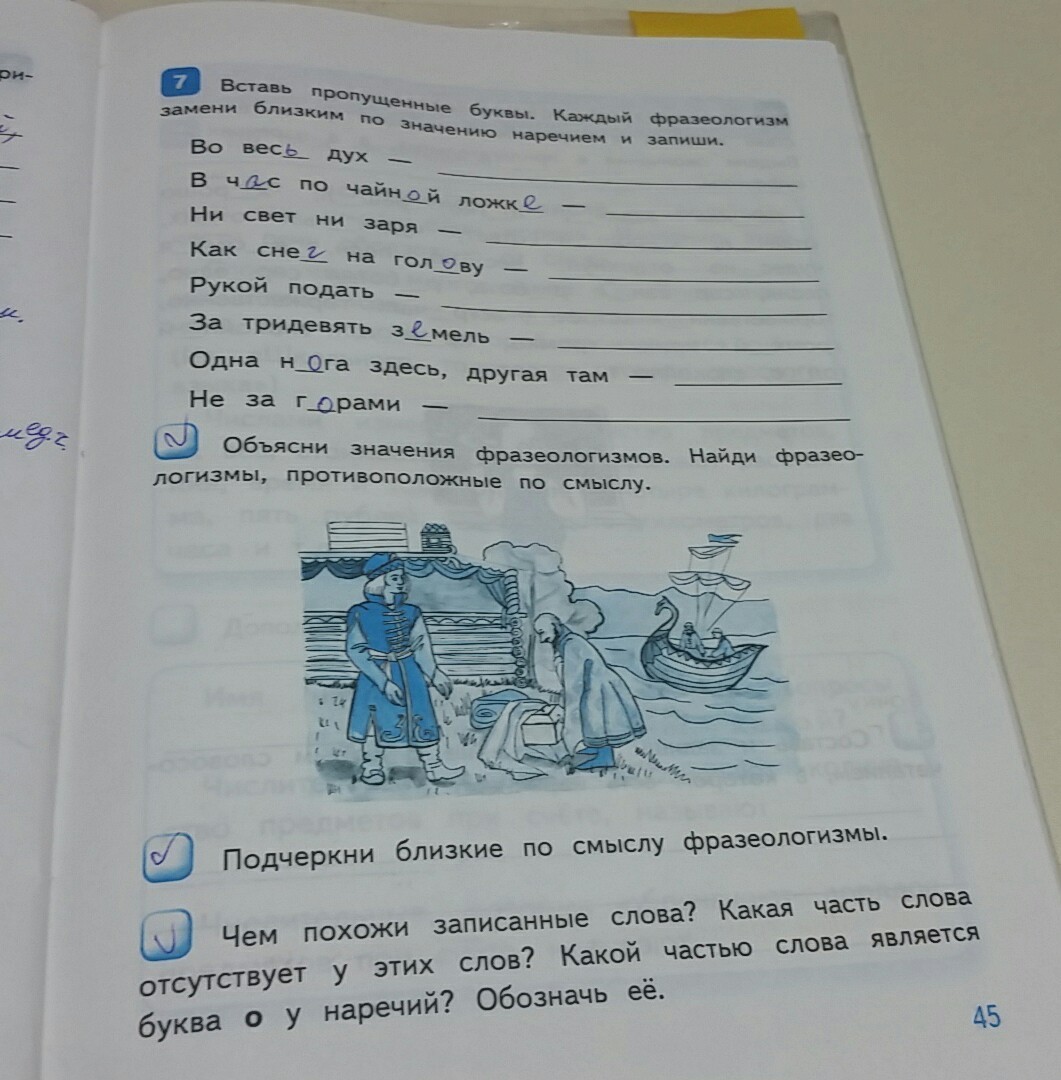 ри-
7 Вставь пропущенные буквы. Каждый фразеологизм
замени близким по значению наречием и запиши.
Во весь дух —
В час по чайной ложке —
Ни свет ни заря —
Как снег на голову —
Рукой подать —
За тридевять земель —
Одна нога здесь, другая там —
Не за горами —
Объясни значения фразеологизмов. Найди фразео-
логизмы, противоположные по смыслу.
Подчеркни близкие по смыслу фразеологизмы.
Чем похожи записанные слова? Какая часть слова
отсутствует у этих слов? Какой частью слова является
буква о у наречий? Обозначь её.
45